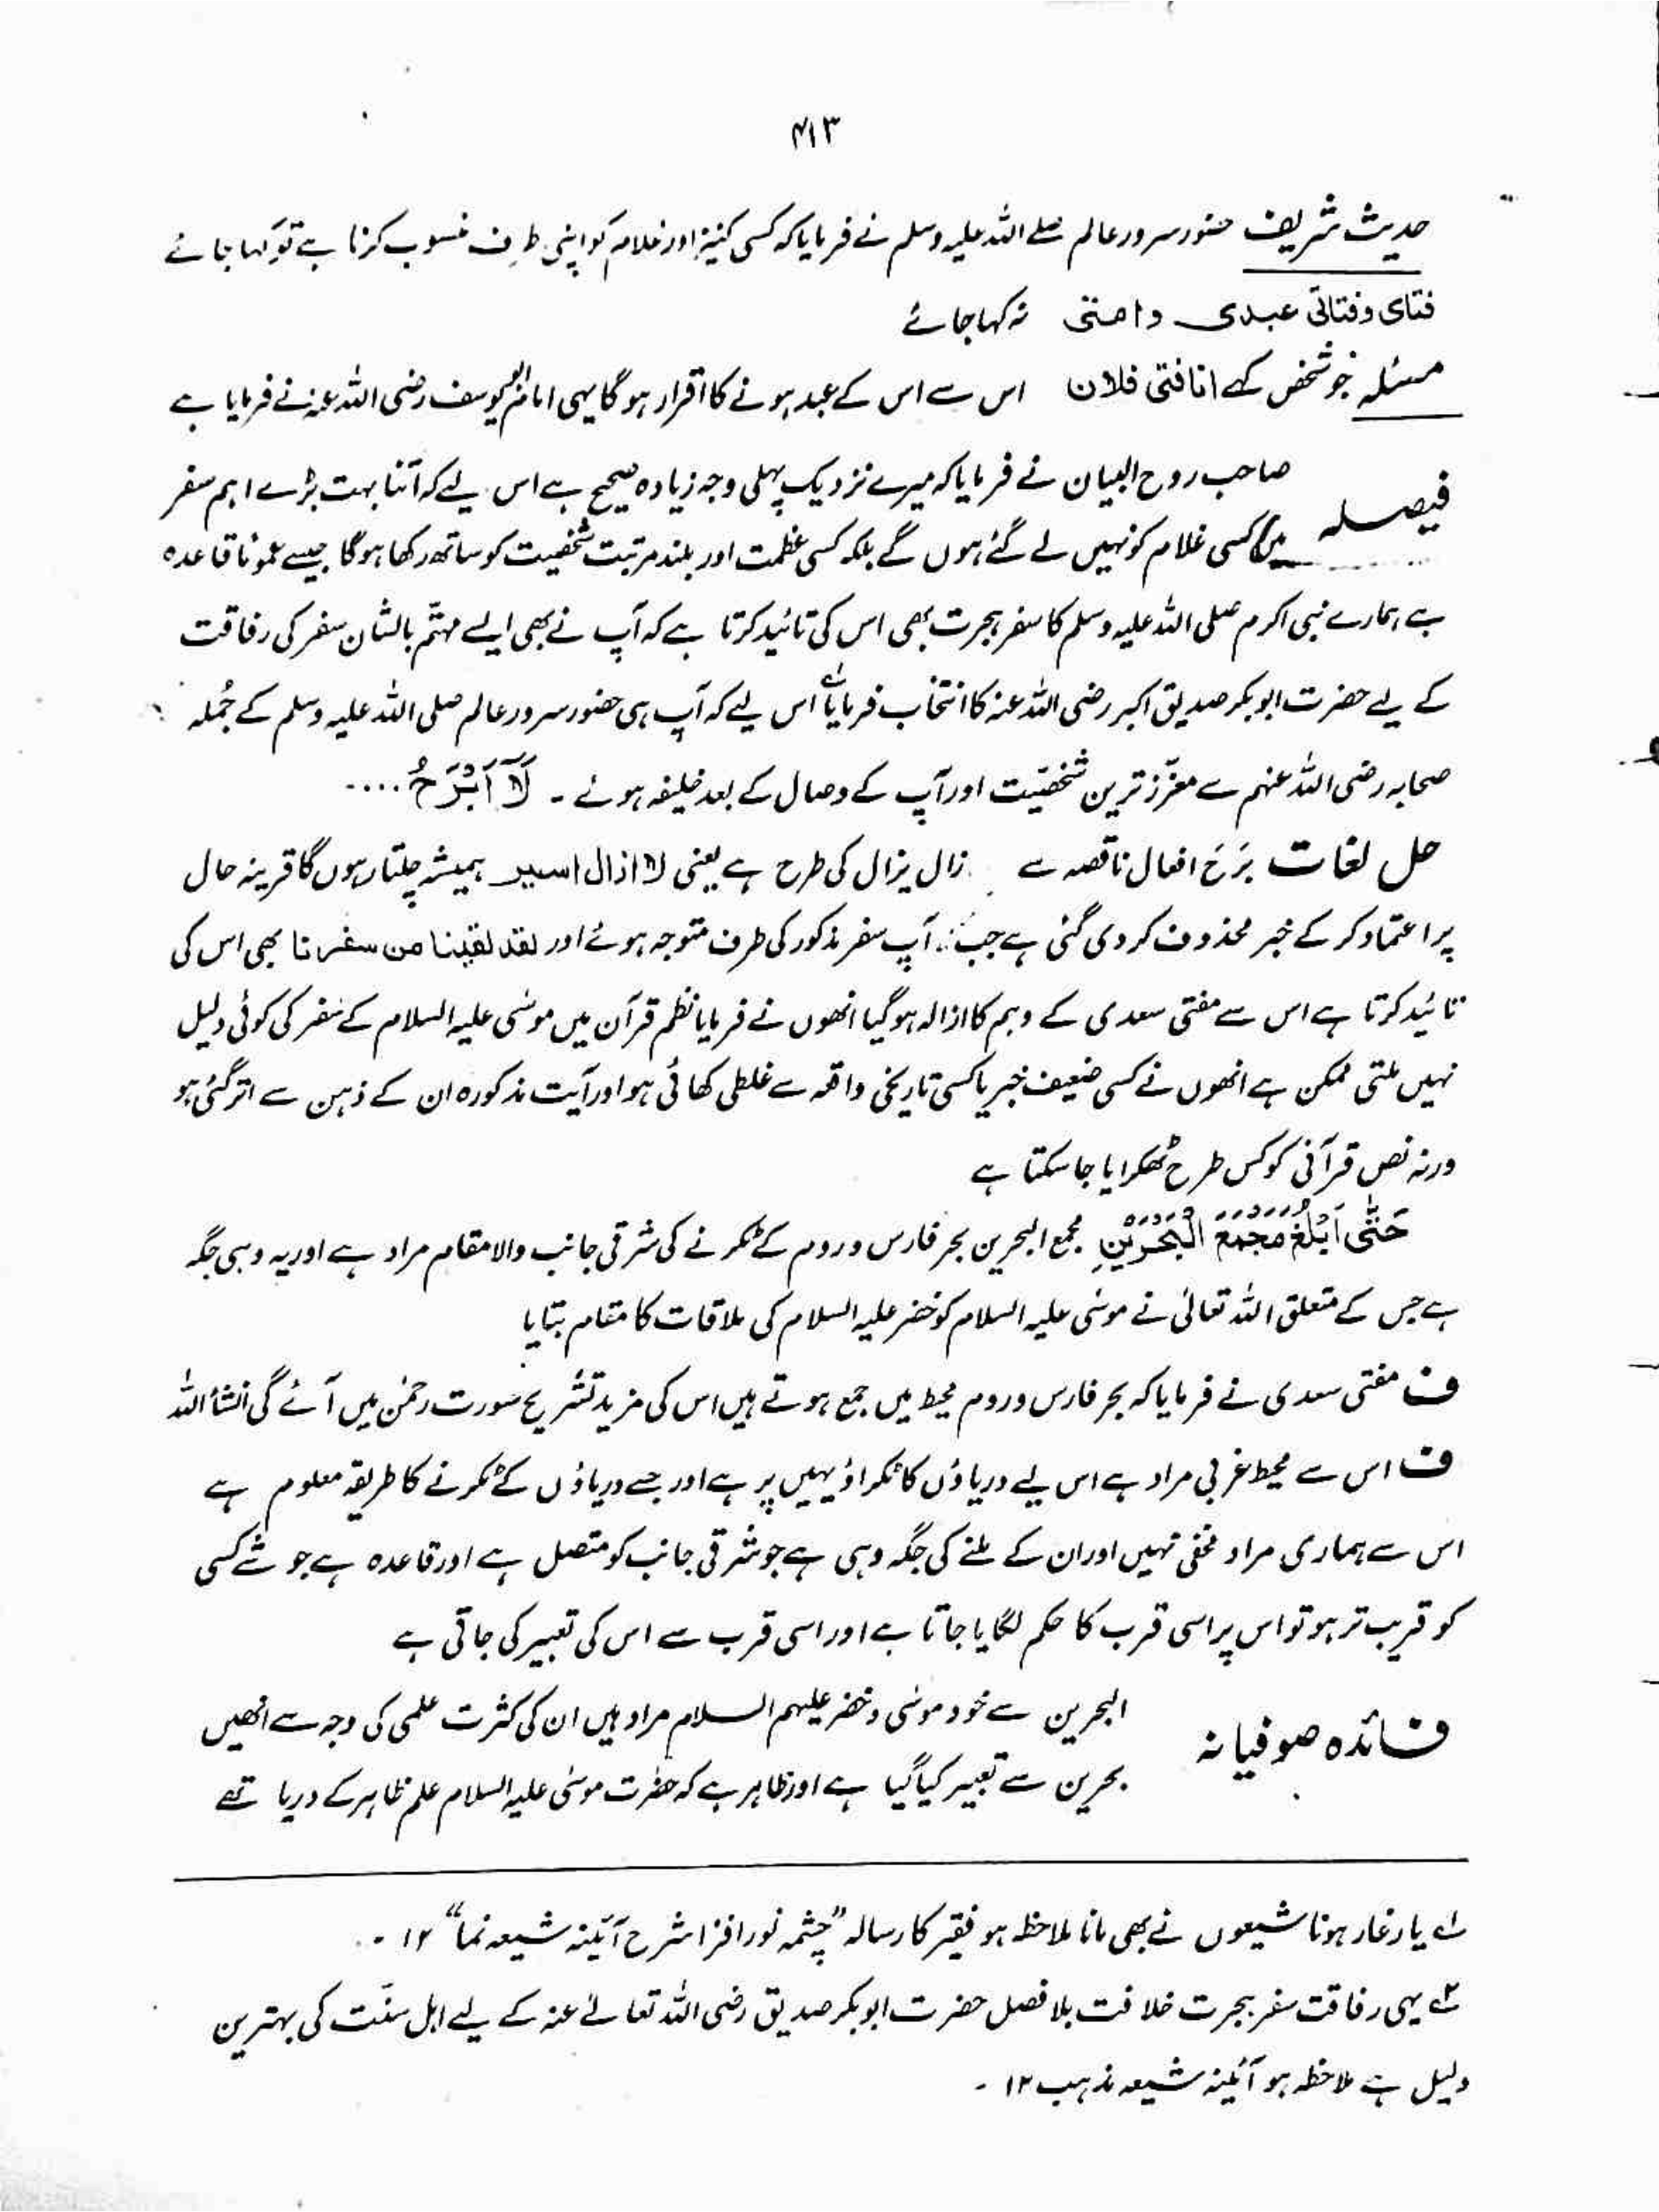 ۴۱۳
حدیث شریف حضور سرور عالم صلے اللہ علیہ وسلم نے فرمایا کہ کسی کنیز اور غلام کو اپنی طرف منسوب کرنا ہے تو کہا جائے
فتای و فتاتی عبدی وامتی نہ کہا جائے
مسئلہ جو شخص کہے انا فتی فلان اس سے اس کے عبد ہونے کا اقرار ہو گا یہی امام ابو یوسف رضی اللہ عنہ نے فرمایا ہے
صاحب روح البیان نے فرمایا کہ میرے نزدیک پہلی وجہ زیادہ صحیح ہے اس لیے کہ اتنا بہت بڑے اہم سفر
فیصلہ میں کسی غلام کو نہیں لے گئے ہوں گے بلکہ کسی عظمت اور بلند مرتبت شخصیت کو ساتھ رکھا ہو گا جیسے عموماً قاعدہ
ہے ہمارے نبی اکرم صلی اللہ علیہ وسلم کا سفر ہجرت بھی اس کی تائید کرتا ہے کہ آپ نے بھی ایسے مہتم بالشان سفر کی رفاقت
کے لیے حضرت ابوبکر صدیق اکبر رضی اللہ عنہ کا انتخاب فرمایا اس لیے کہ آپ ہی حضور سرور عالم صلی اللہ علیہ وسلم کے جُملہ
صحابہ رضی اللہ عنہم سے معزّز ترین شخصیّت اور آپ کے وصال کے بعد خلیفہ ہوئے ۔ لَآ اَبْرَحُ ....
حل لغات بَرَحَ افعال ناقصہ سے زال یزال کی طرح ہے یعنی لا ازال اسیر ہمیشہ چلتا رہوں گا قرینہ حال
پر اعتماد کر کے خبر محذوف کر دی گئی ہے جب آپ سفر مذکور کی طرف متوجہ ہوئے اور لقد لقینا من سفرنا بھی اس کی
تائید کرتا ہے اس سے مفتی سعدی کے وہم کا ازالہ ہو گیا انھوں نے فرمایا نظم قرآن میں موسٰی علیہ السلام کے سفر کی کوئی دلیل
نہیں ملتی ممکن ہے انھوں نے کسی ضعیف خبر یا کسی تاریخی واقعہ سے غلطی کھائی ہو اور آیت مذکورہ ان کے ذہن سے اتر گئی ہو
ورنہ نص قرآنی کو کس طرح ٹھکرایا جا سکتا ہے
حَتّٰی اَبْلُغَ مَجْمَعَ الْبَحْرَیْنِ مجمع البحرین بحر فارس و روم کے ٹکرنے کی شرقی جانب والا مقام مراد ہے اور یہ وہی جگہ
ہے جس کے متعلق اللہ تعالٰی نے موسٰی علیہ السلام کو خضر علیہ السلام کی ملاقات کا مقام بتایا
ف مفتی سعدی نے فرمایا کہ بحر فارس و روم محیط میں جمع ہوتے ہیں اس کی مزید تشریح سورت رحمٰن میں آئے گی انشاء اللہ
ف اس سے محیط غربی مراد ہے اس لیے دریاؤں کا ٹکراؤ یہیں پر ہے اور جسے دریاؤں کے ٹکرنے کا طریقہ معلوم ہے
اس سے ہماری مراد مخفی نہیں اور ان کے ملنے کی جگہ وہی ہے جو شرقی جانب کو متصل ہے اور قاعدہ ہے جو شے کسی
کو قریب تر ہو تو اس پر اسی قرب کا حکم لگایا جاتا ہے اور اسی قرب سے اس کی تعبیر کی جاتی ہے
فائدہ صوفیانہ البحرین سے خود موسٰی و خضر علیہم السلام مراد ہیں ان کی کثرت علمی کی وجہ سے انھیں
بحرین سے تعبیر کیا گیا ہے اور ظاہر ہے کہ حضرت موسٰی علیہ السلام علم ظاہر کے دریا تھے
۱ے یار غار ہونا شیعوں نے بھی مانا ملاحظہ ہو فقیر کا رسالہ "چشمہ نور افزا شرح آئینہ شیعہ نما" ۱۲ ۔
۲ے یہی رفاقت سفر ہجرت خلافت بلا فصل حضرت ابوبکر صدیق رضی اللہ تعالےٰ عنہ کے لیے اہل سنّت کی بہترین
دلیل ہے ملاحظہ ہو آئینہ شیعہ مذہب ۱۲ ۔